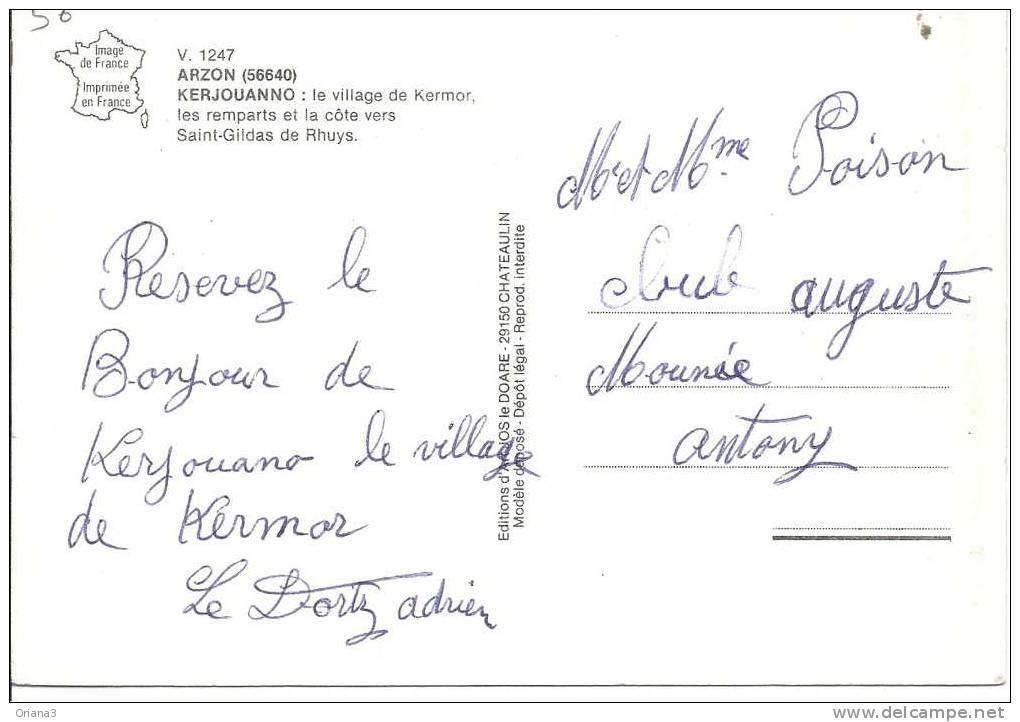 50
Image
de France
Imprimée
en France
V. 1247
ARZON (56640)
KERJOUANNO : le village de Kermor,
les remparts et la côte vers
Saint-Gildas de Rhuys.
Resevez le
Bonjour de
Kerjouano le village
de Kermor
Le Dortz adrien
Editions d'Art JOS le DOARE - 29150 CHATEAULIN
Modèle déposé - Dépôt légal - Reprod. interdite
Mr et Mme Poison
club auguste
Mounée
antony
Oriana3
www.delcampe.net